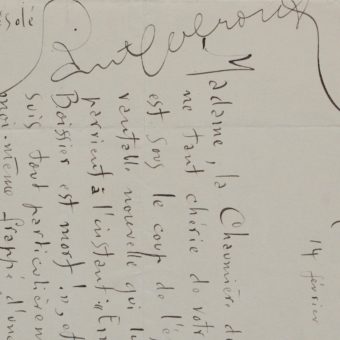 14 février
Madame, la Chaumière d
ne tant chérie de votr
est sous le coup de l'é
vantable nouvelle qui lu
parvient à l'instant: « Ern
Boissier est mort! », et
suis tout particulièrem
moi-même frappé d'une
ésolé
Saint-Pol-Roux